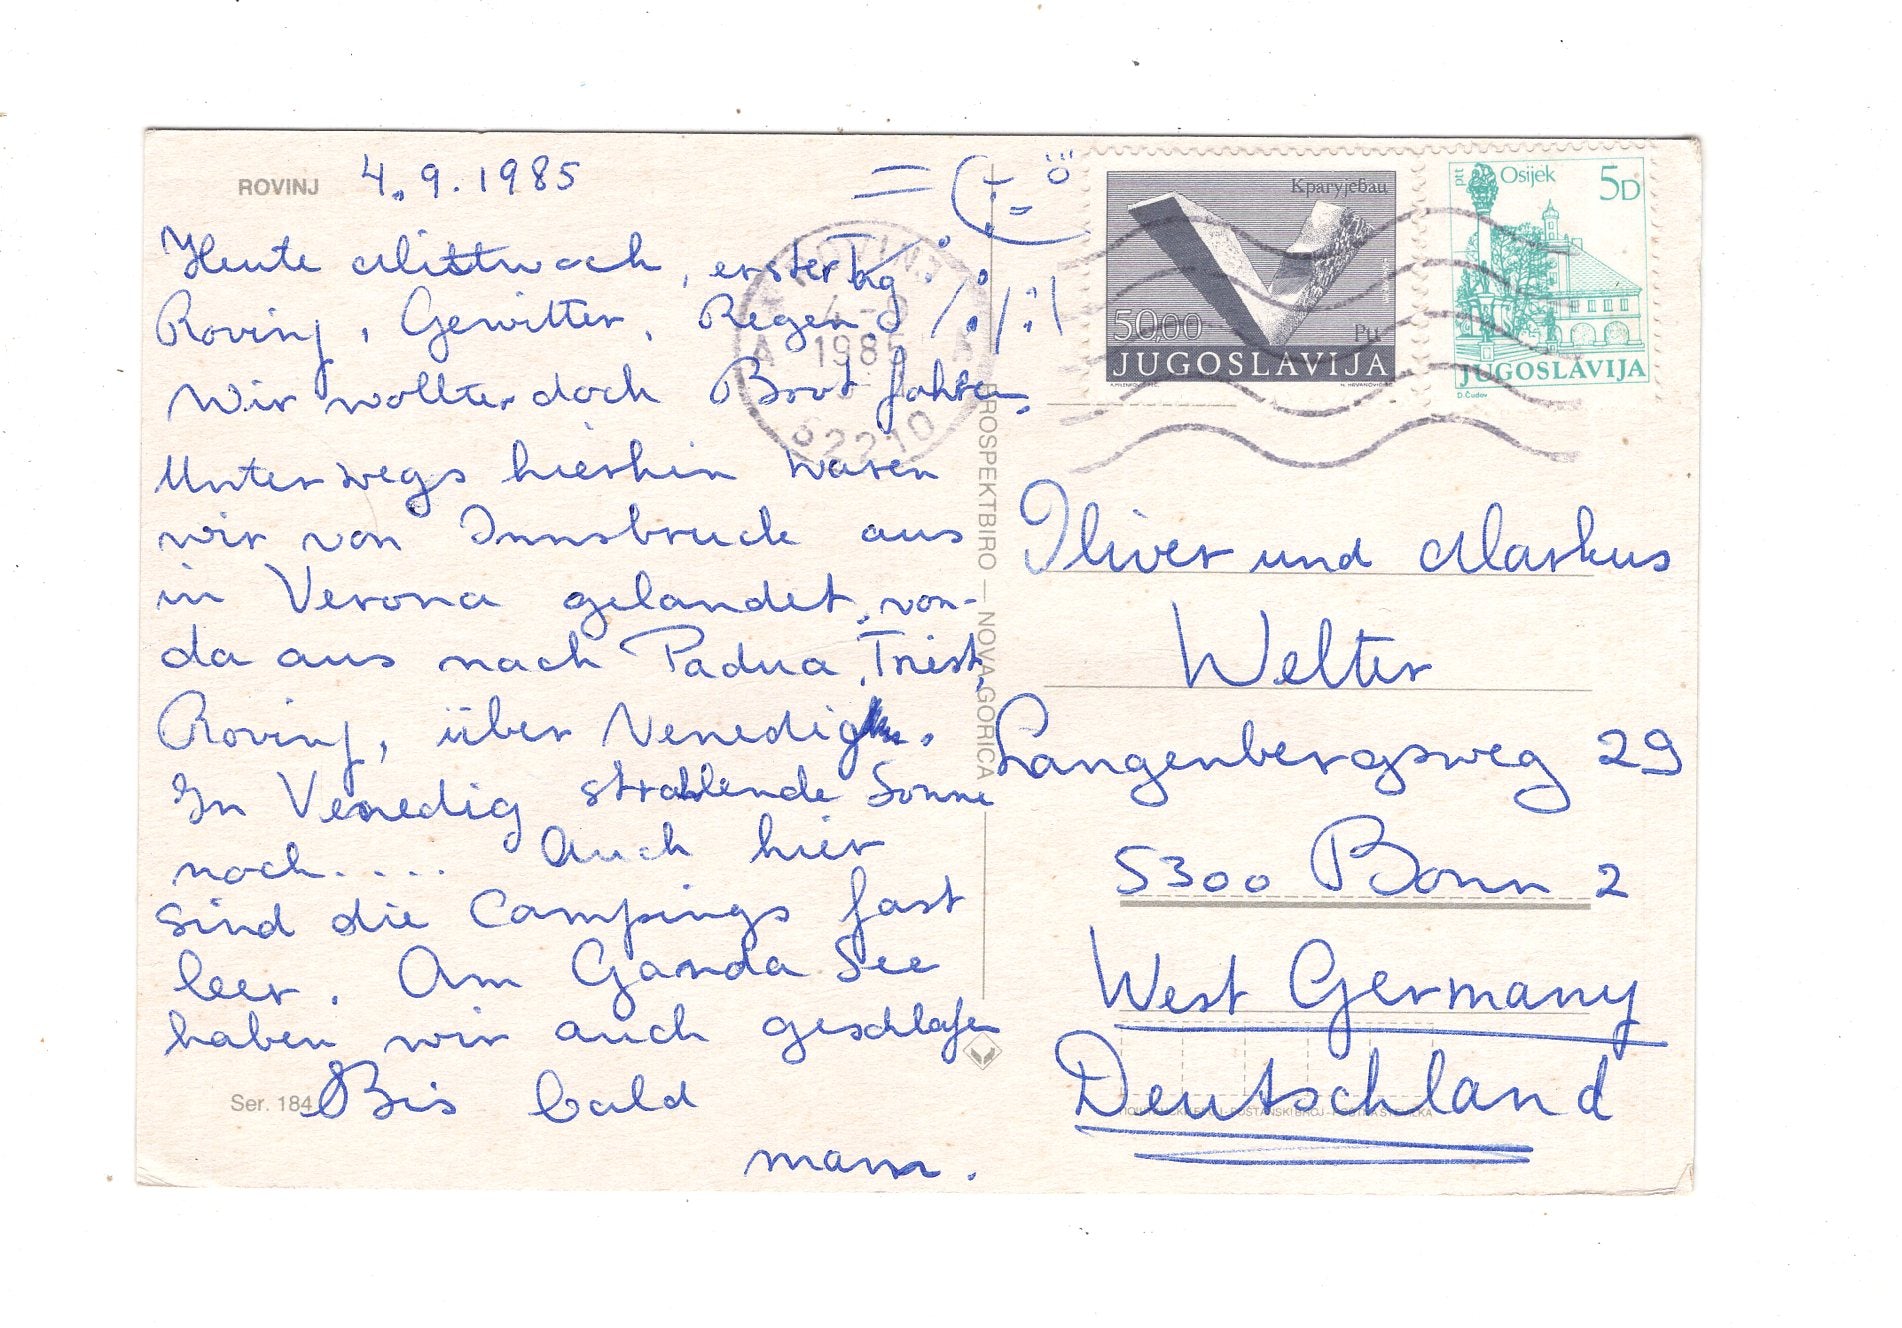 ROVINJ 4.9.1985
Heute Mittwoch, erster Tag
Rovinj, Gewitter, Regen
Wir wollten doch Boot fahren.
Unterwegs hierhin waren
wir von Innsbruck aus
in Verona gelandet, von-
da aus nach Padua, Triest,
Rovinj, über Venedig
In Venedig strahlende Sonne
noch..... Auch hier
sind die Campings fast
leer. Am Garda See
haben wir auch geschlafen
Bis bald
mam.
Ser. 184
PROSPEKTBIRO — NOVA GORICA
ROVINJ
1985
52210
Крагујевац
50,00
JUGOSLAVIJA
ptt
Osijek
5D
JUGOSLAVIJA
D.Čudov
Oliver und Markus
Welter
Langenbergsweg 29
5300 Bonn 2
West Germany
Deutschland